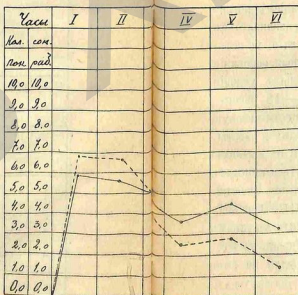 Часы I II IV V VI
Кал. сом.
пок раб.
10,0 10,0
9,0 9,0
8,0 8,0
7,0 7,0
6,0 6,0
5,0 5,0
4,0 4,0
3,0 3,0
2,0 2,0
1,0 1,0
0,0 0,0